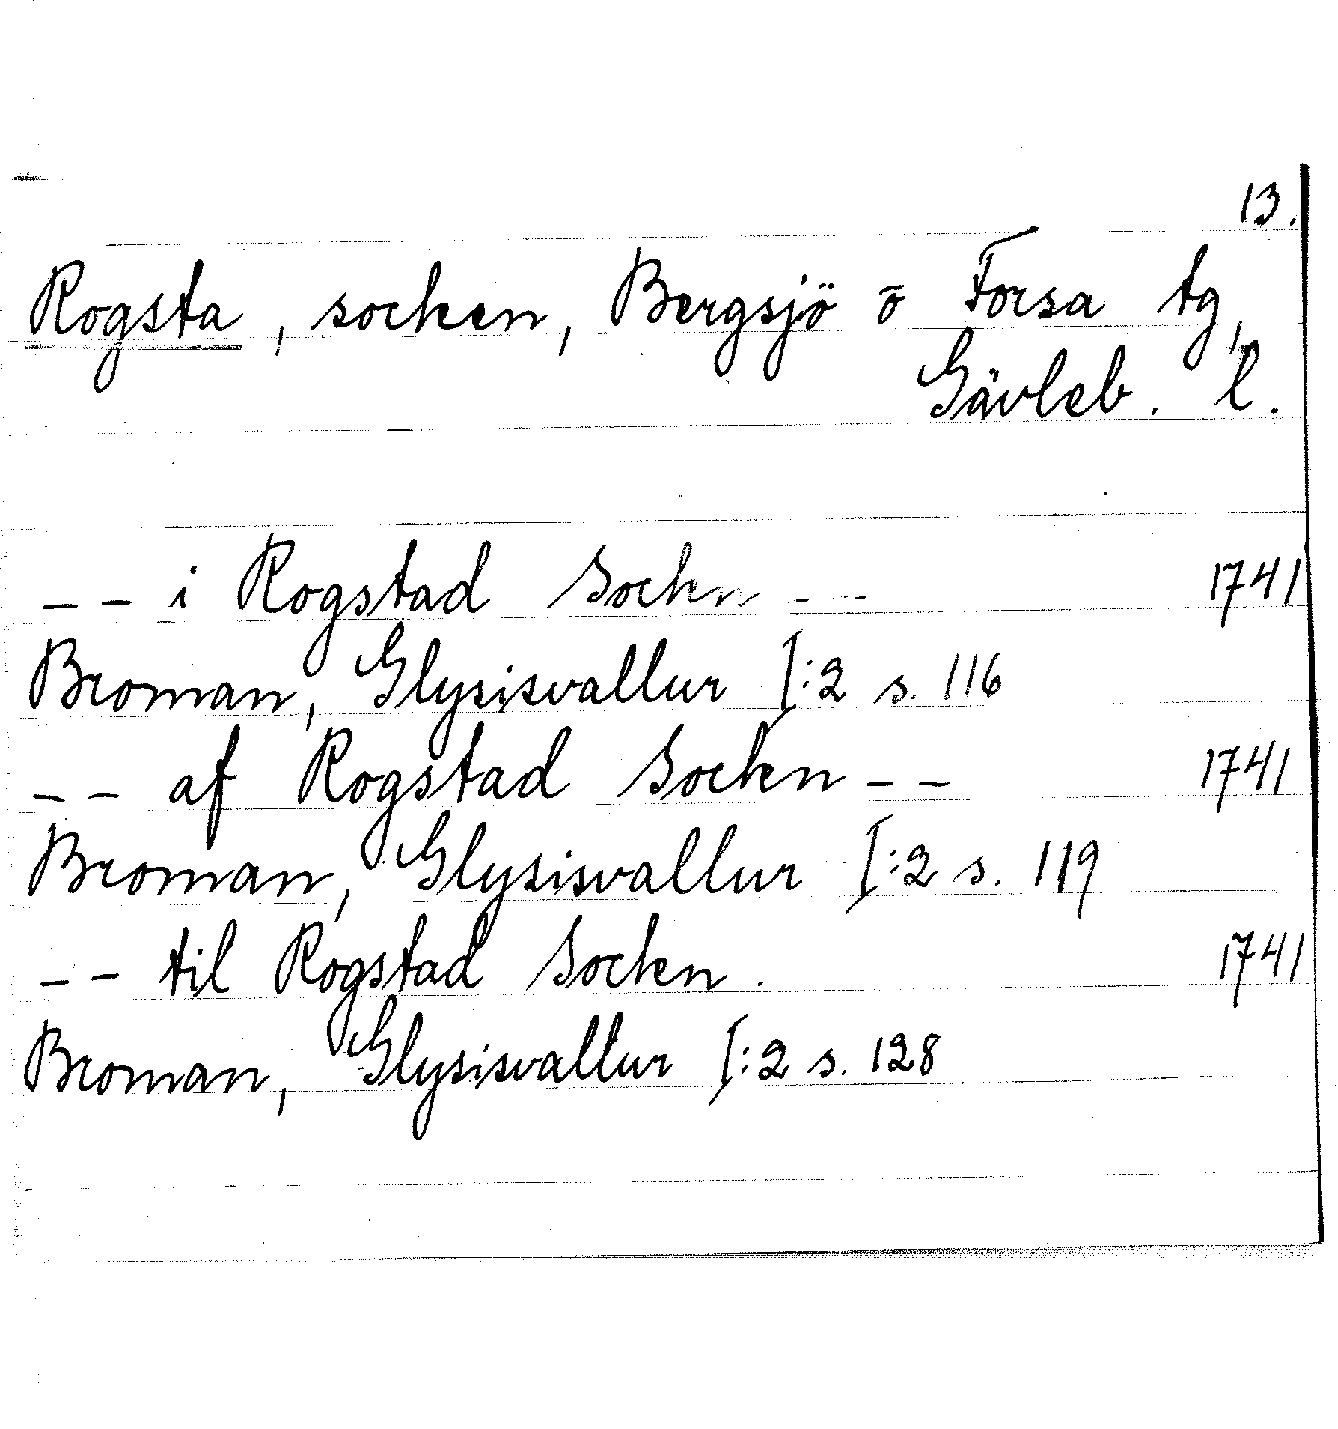 13.
Rogsta, socken, Bergsjö o Forsa tg,
Gävleb. l.
-- i Rogstad Sockn -- 1741
Broman, Glysisvallur I:2 s. 116
-- af Rogstad Sockn -- 1741
Broman, Glysisvallur I:2 s. 119
-- til Rogstad Sockn. 1741
Broman, Glysisvallur I:2 s. 128